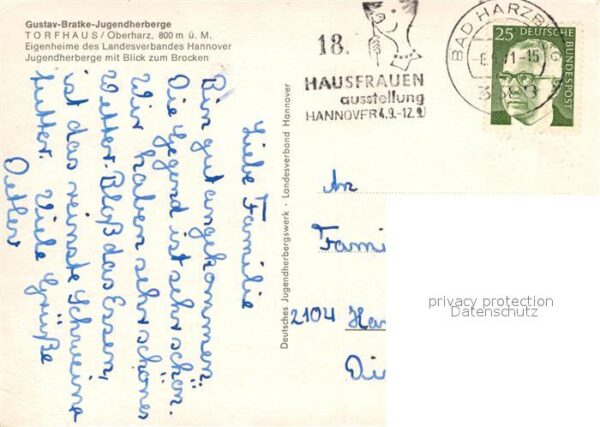 Gustav-Bratke-Jugendherberge
TORFHAUS/Oberharz, 800 m ü. M.
Eigenheime des Landesverbandes Hannover
Jugendherberge mit Blick zum Brocken
Liebe Familie
Bin gut angekommen.
Die Gegend ist sehr schön.
Wir haben sehr schönes
Wetter. Bloß das Essen,
ist das reinste Schweine
futter. Viele Grüße
Deutsches Jugendherbergswerk · Landesverband Hannover
18.
HAUSFRAUEN
ausstellung
HANNOVER 4.9.-12.9
BAD HARZBURG
25
DEUTSCHE
BUNDESPOST
An
Fami
2104 Ha
privacy protection
Datenschutz